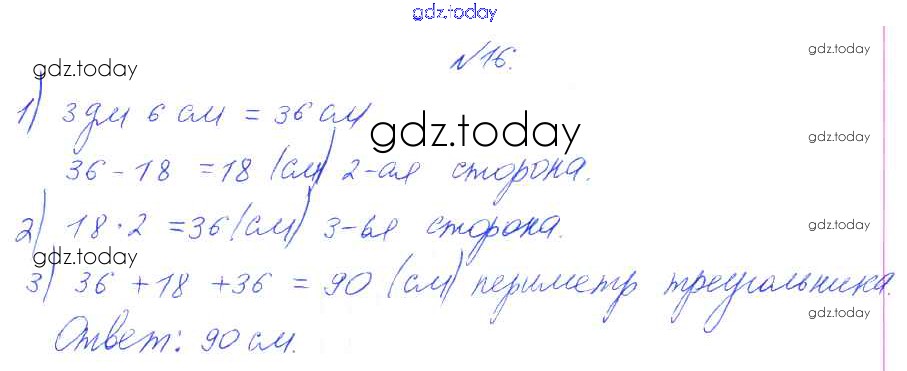 gdz.today
№16.
gdz.today
gdz.today
1) 3 дм 6 см = 36 см
gdz.today
gdz.today
36 - 18 = 18 (см) 2-ая сторона.
2) 18 · 2 = 36 (см) 3-ья сторона.
gdz.today
gdz.today
3) 36 + 18 + 36 = 90 (см) периметр треугольника.
gdz.today
Ответ: 90 см.